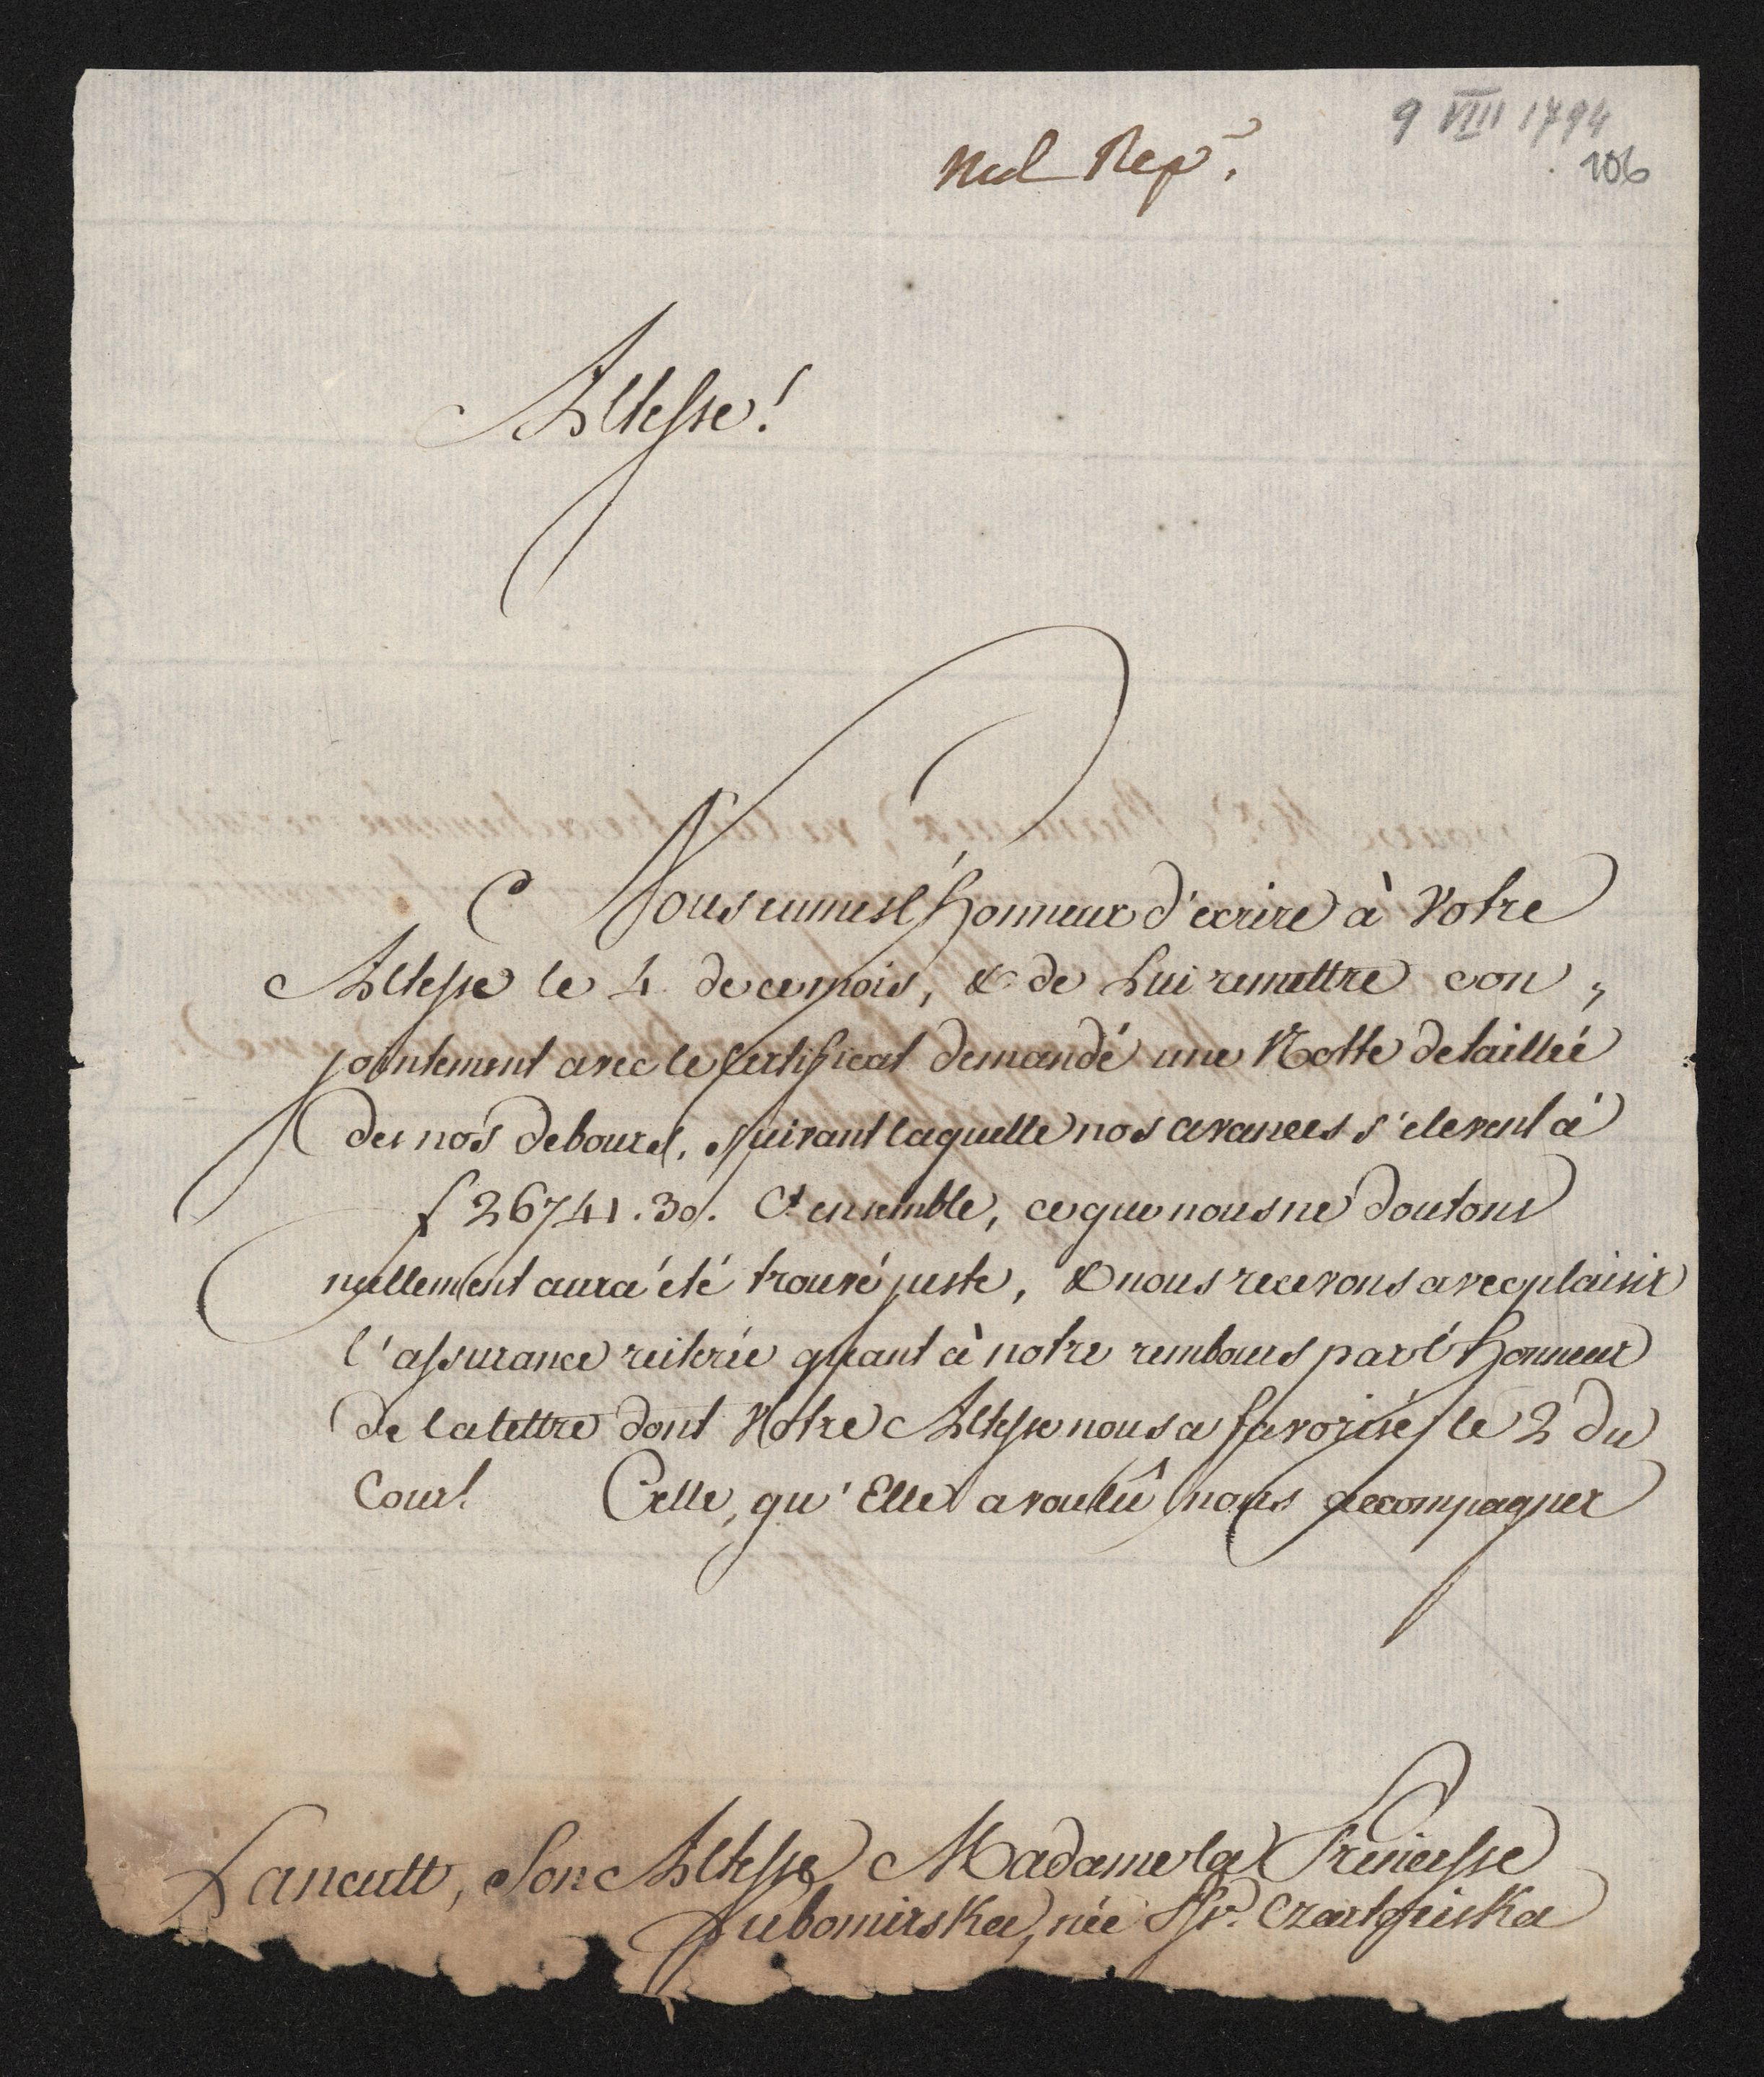 9 VIII 1794
106
Nul Rep.
Altesse!
Nous eumes l'honneur d'ecrire à Votre
Altesse le 4 de ce mois, & de Lui remettre con„
jointement avec le Certificat demandé une Notte detaillée
des nos debours, suivant laquelle nos avances s'elevent à
f 26741.30. Ct ensemble, ce que nous ne doutons
nullement aura été trouvé juste, & nous recevons avec plaisir
l'assurance reiterée quant à notre rembours par l'honneur
de la lettre dont Votre Altesse nous a favorisés le 2 du
Cour! Celle, qu'Elle a voulû nous accompagner
Lancutt, Son Altesse Madame la Princesse
Lubomirska, née Pss. Czartoriska